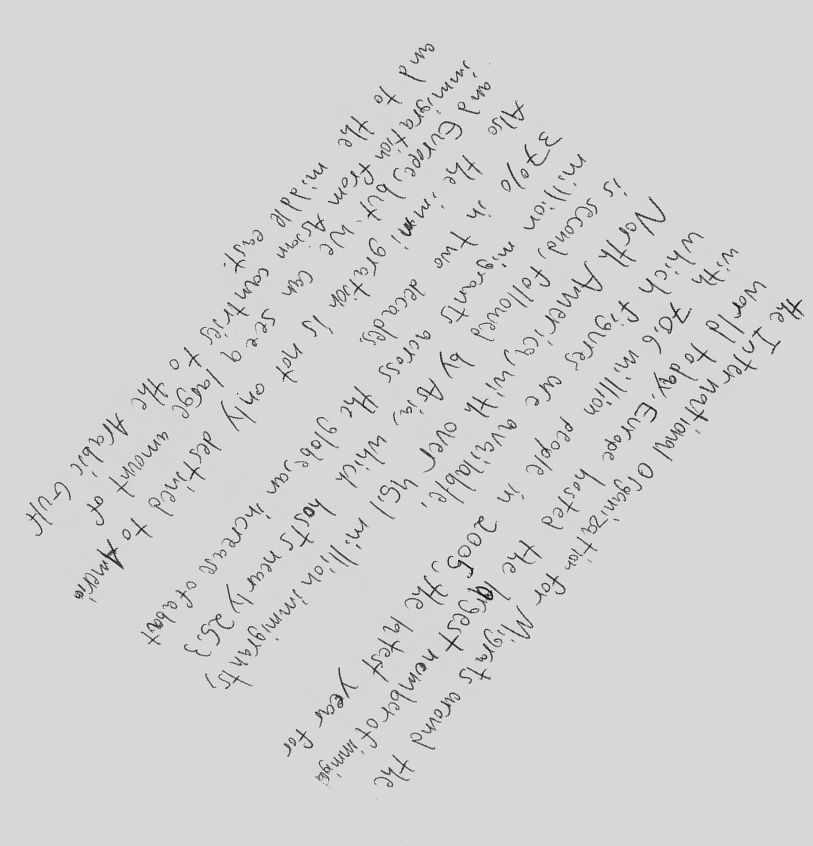 the International Organization for Migrats around the
world today. Europe hosted the largest number of immigr
with 70.6 million people in 2005, the latest year for
which figures are available;
North America, with over 45.1 million immigrants,
is second, followed by Asia, which hosts nearly 25.3
million migrants across the globe, an increase of about
37% in two decades.
Also the immigration is not only destined to Ameria
and Europe, but we can see a large amount of
immigration from Asian countries to the Arabic Gulf
and to the middle east.